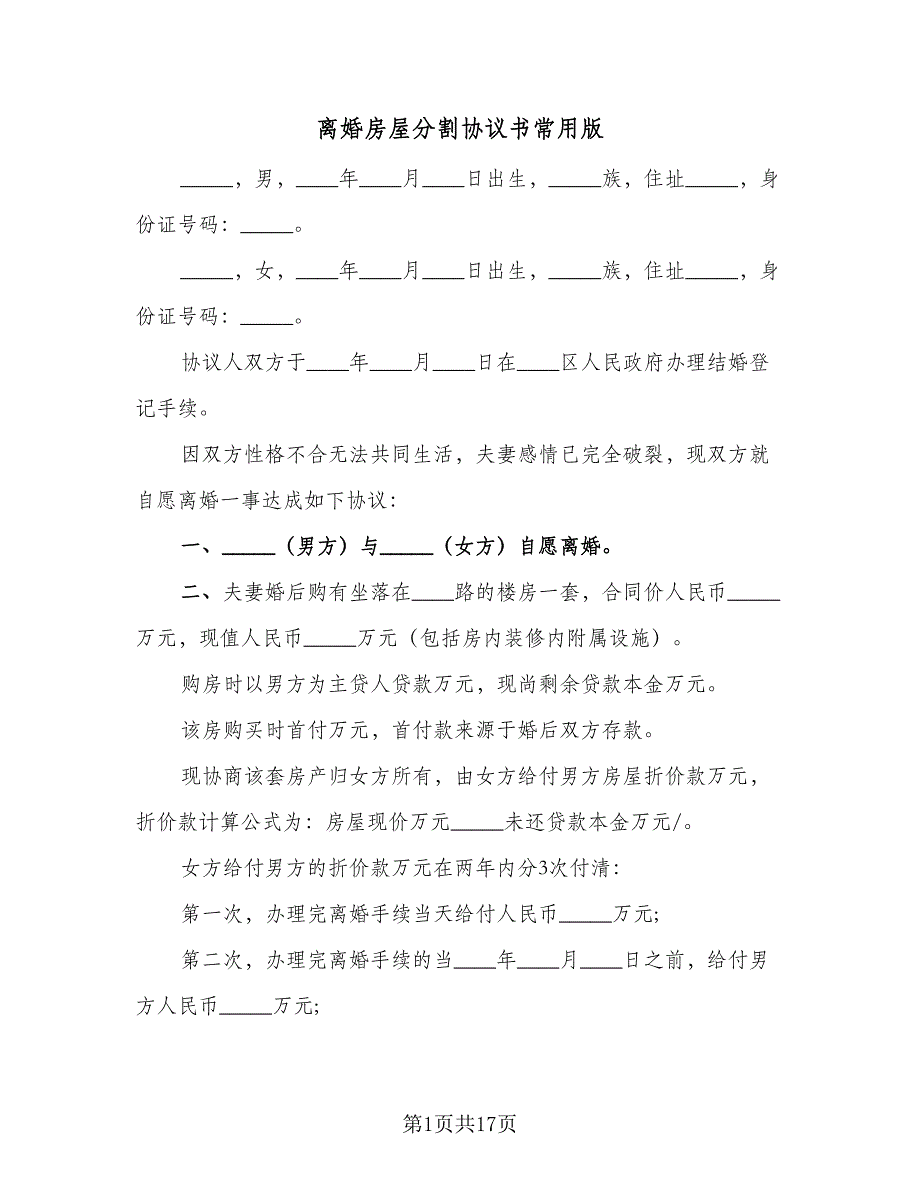 离婚房屋分割协议书常用版
_____，男，____年____月____日出生，_____族，住址_____，身
份证号码：_____。
_____，女，____年____月____日出生，_____族，住址_____，身
份证号码：_____。
协议人双方于____年____月____日在____区人民政府办理结婚登
记手续。
因双方性格不合无法共同生活，夫妻感情已完全破裂，现双方就
自愿离婚一事达成如下协议：
一、_____（男方）与_____（女方）自愿离婚。
二、夫妻婚后购有坐落在____路的楼房一套，合同价人民币_____
万元，现值人民币_____万元（包括房内装修内附属设施）。
购房时以男方为主贷人贷款万元，现尚剩余贷款本金万元。
该房购买时首付万元，首付款来源于婚后双方存款。
现协商该套房产归女方所有，由女方给付男方房屋折价款万元，
折价款计算公式为：房屋现价万元_____未还贷款本金万元/。
女方给付男方的折价款万元在两年内分3次付清：
第一次，办理完离婚手续当天给付人民币_____万元;
第二次，办理完离婚手续的当____年____月____日之前，给付男
方人民币_____万元;
第1页共17页